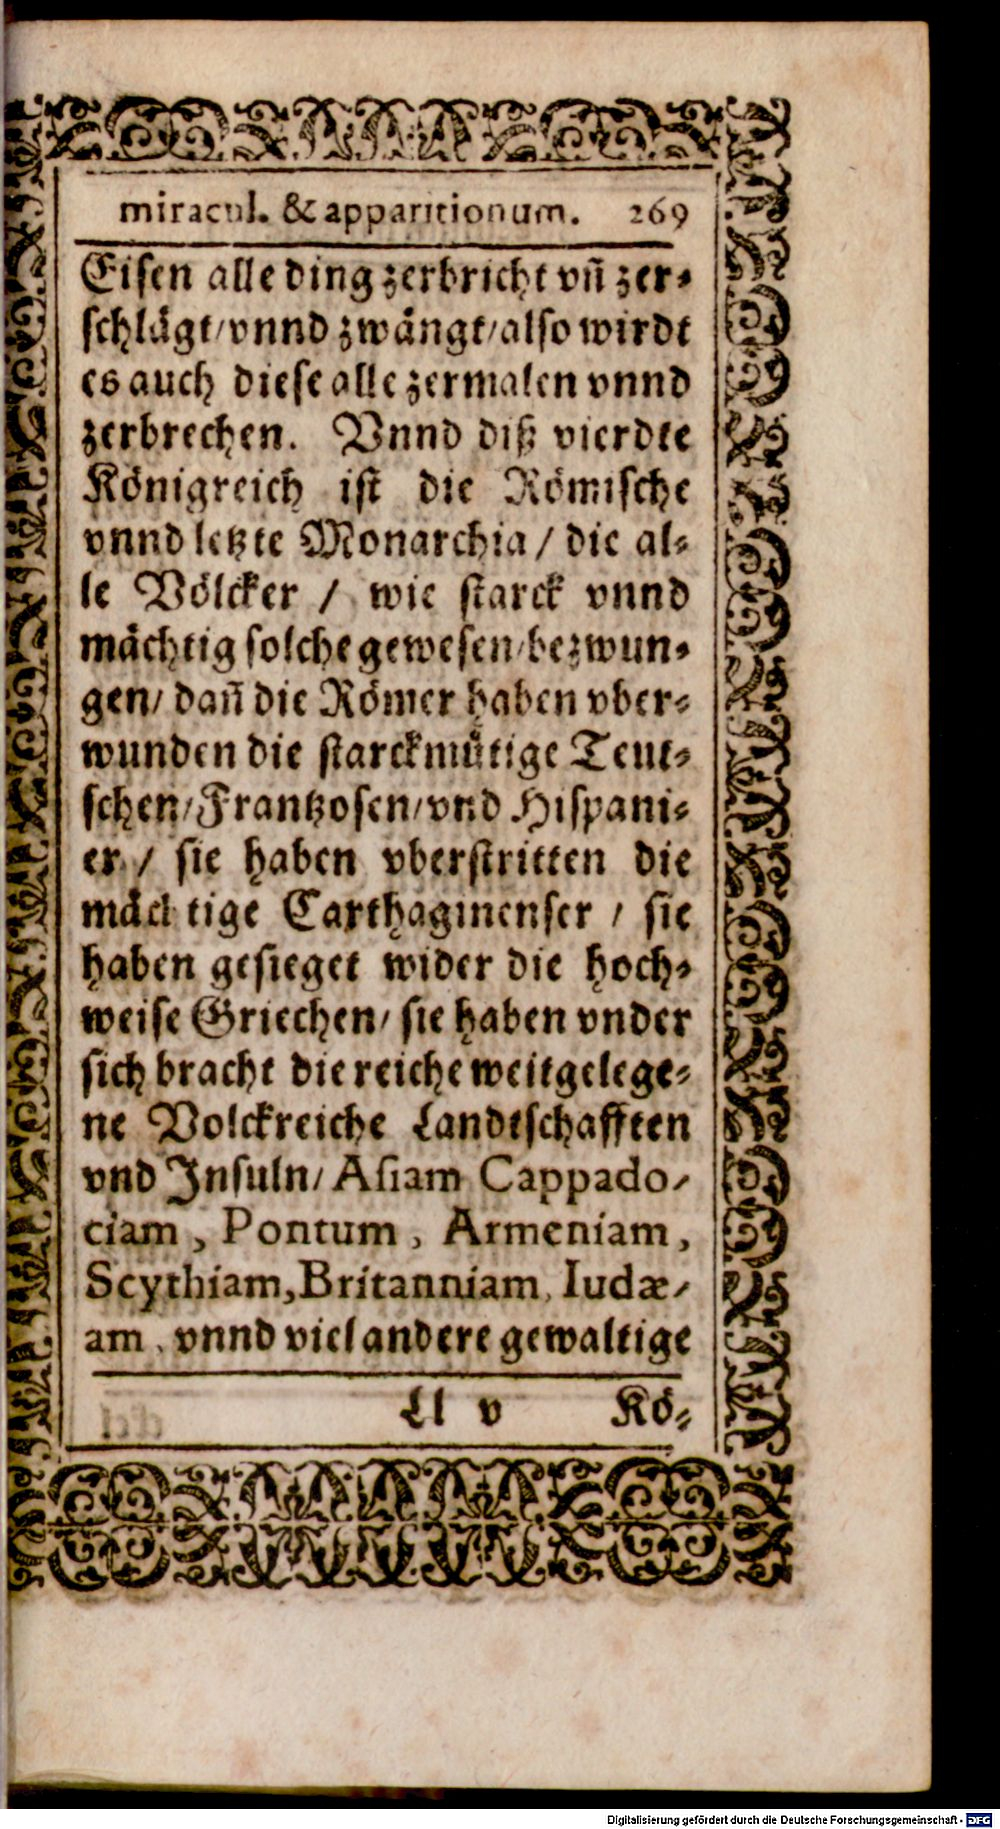 miracul. & apparitionum. 269
Eisen alle ding zerbricht vñ zer-
schlägt/vnnd zwängt/also wirdt
es auch diese alle zermalen vnnd
zerbrechen. Vnnd diß vierdte
Königreich ist die Römische
vnnd letzte Monarchia / die al-
le Völcker / wie starck vnnd
mächtig solche gewesen/bezwun-
gen/ dañ die Römer haben vber-
wunden die starckmütige Teut-
schen/Frantzosen/vnd Hispani-
er / sie haben vberstritten die
mächtige Carthaginenser / sie
haben gesieget wider die hoch-
weise Griechen/ sie haben vnder
sich bracht die reiche weitgelege-
ne Volckreiche Landtschafften
vnd Insuln/ Asiam Cappado-
ciam, Pontum, Armeniam,
Scythiam, Britanniam, Iudæ-
am, vnnd viel andere gewaltige
Ll v Kö-
Digitalisierung gefördert durch die Deutsche Forschungsgemeinschaft - DFG